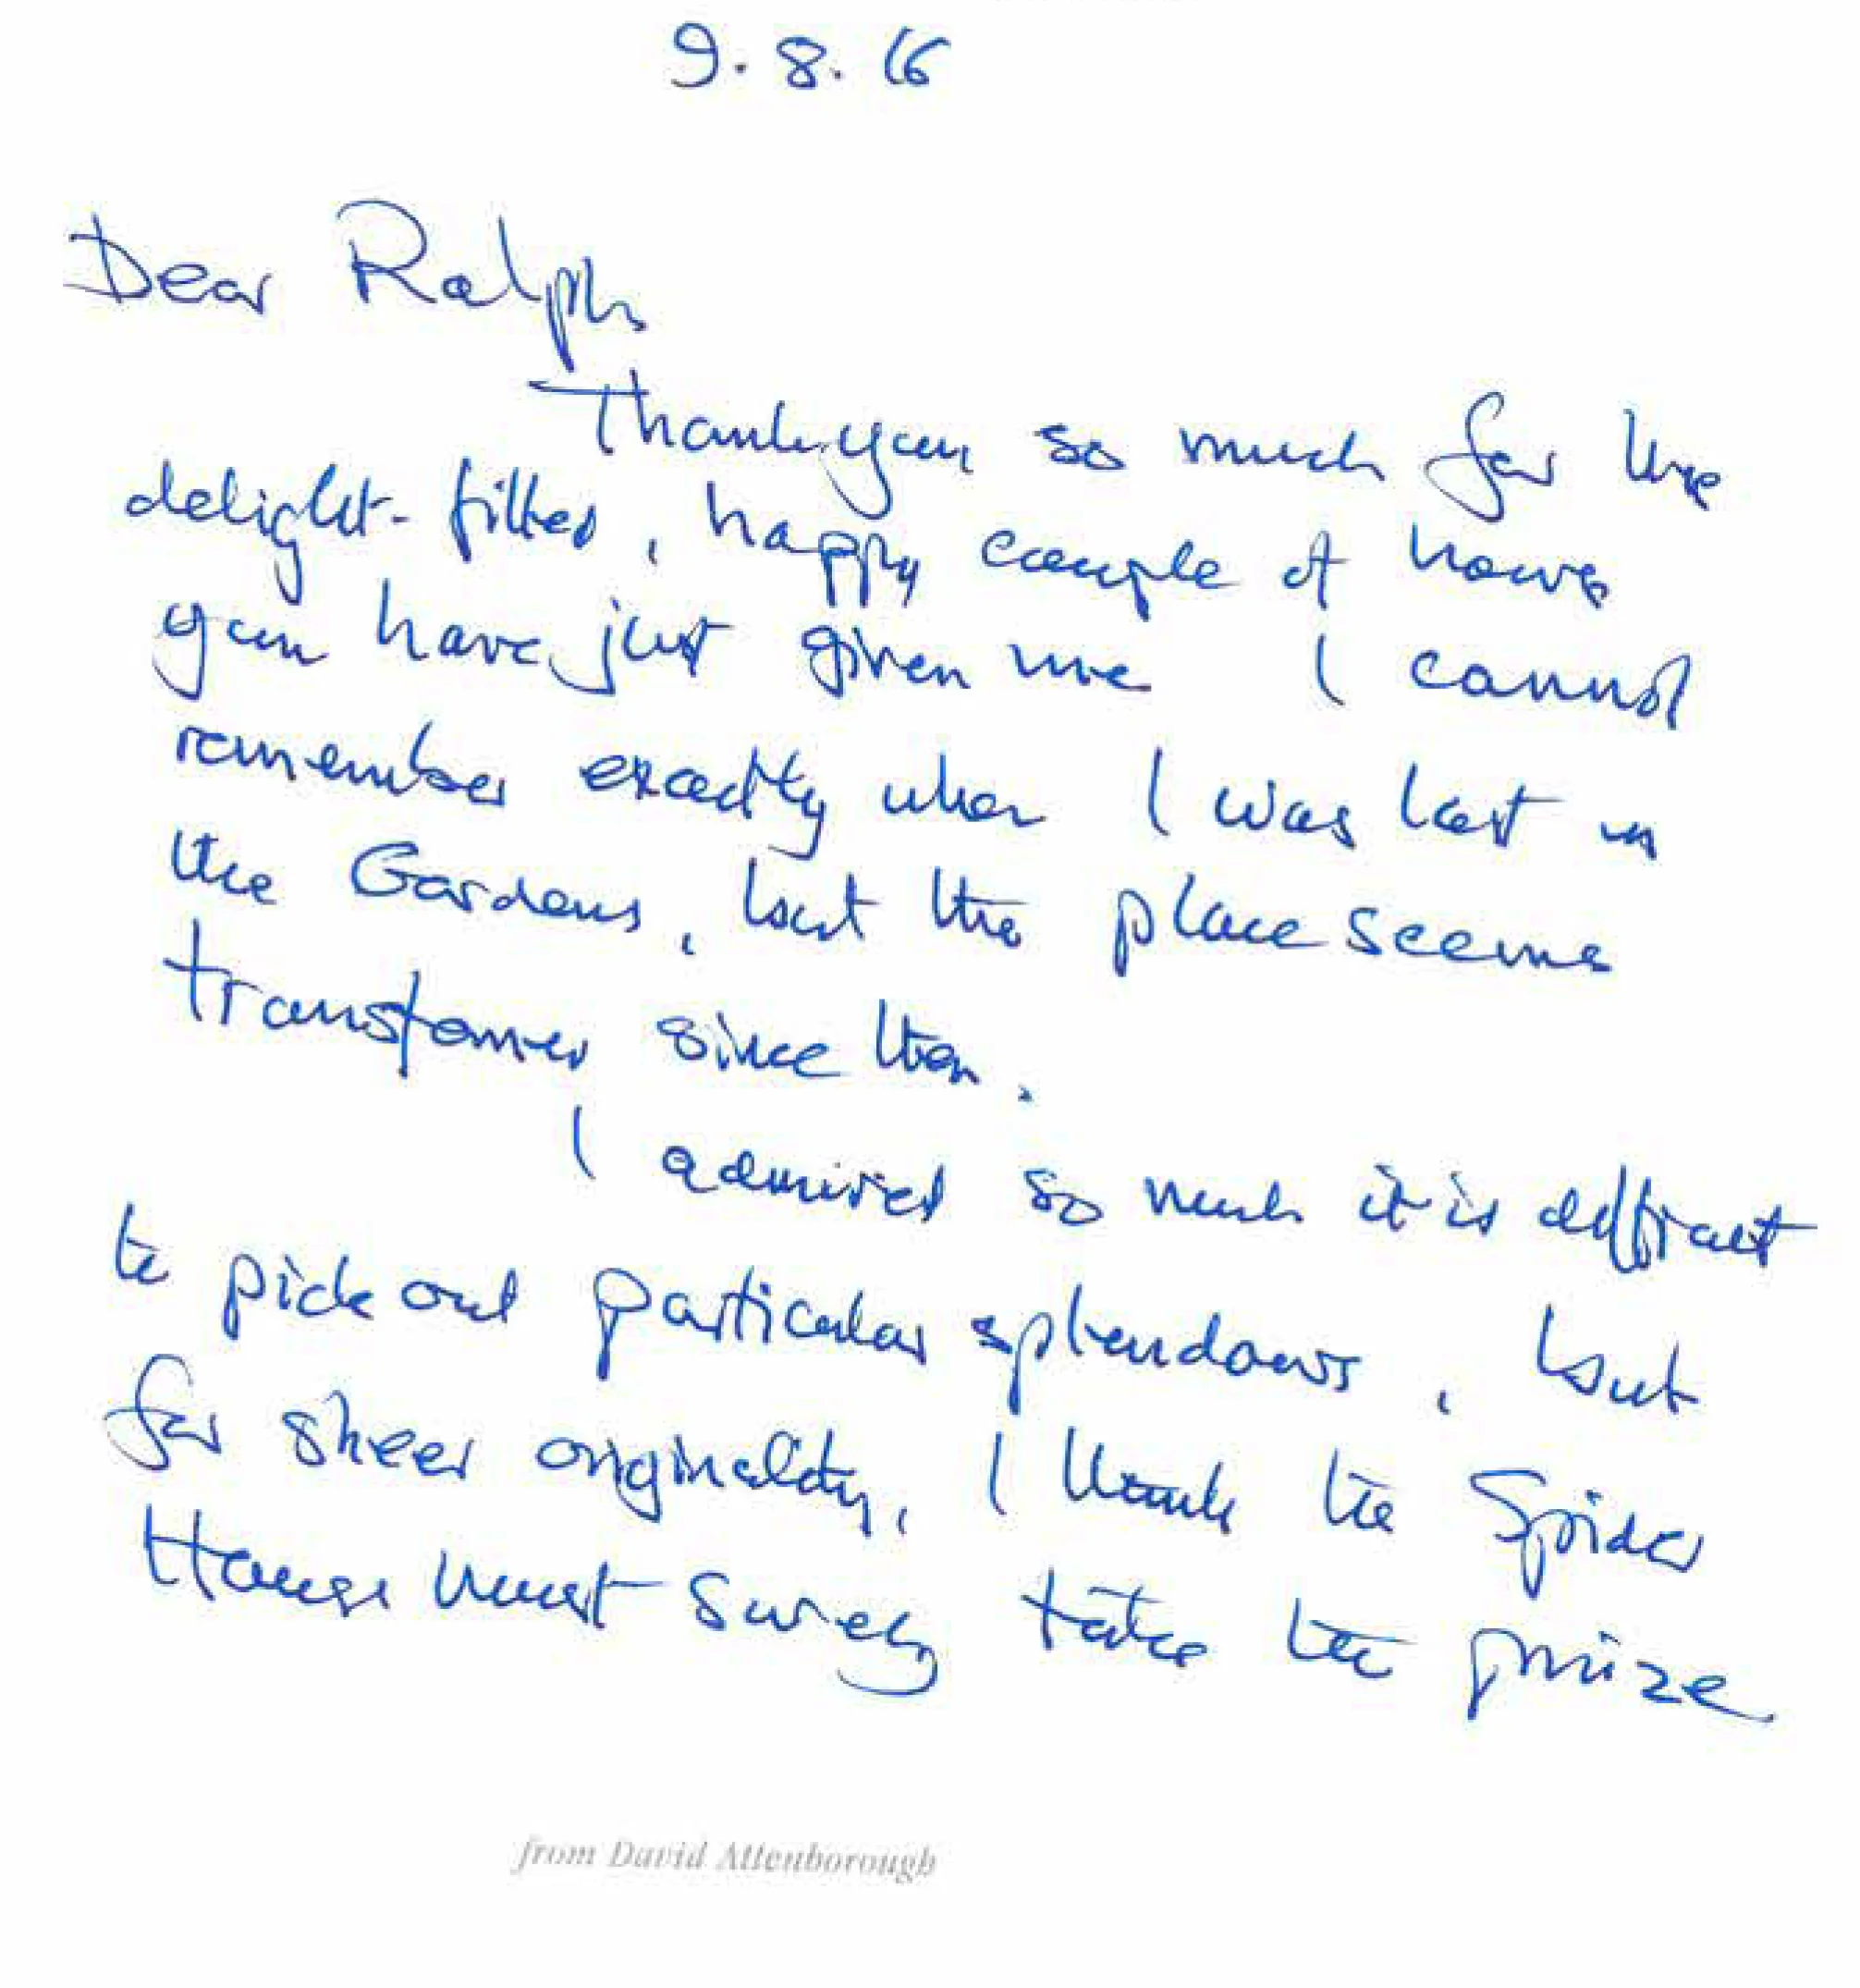 9.8.16
Dear Ralph
Thank you so much for the
delight-filled, happy couple of hours
you have just given me I cannot
remember exactly when I was last in
the Gardens, but the place seems
transformed since then.
I admired so much it is difficult
to pick out particular splendours, but
for sheer originality, I think the Spider
House must surely take the prize
from David Attenborough